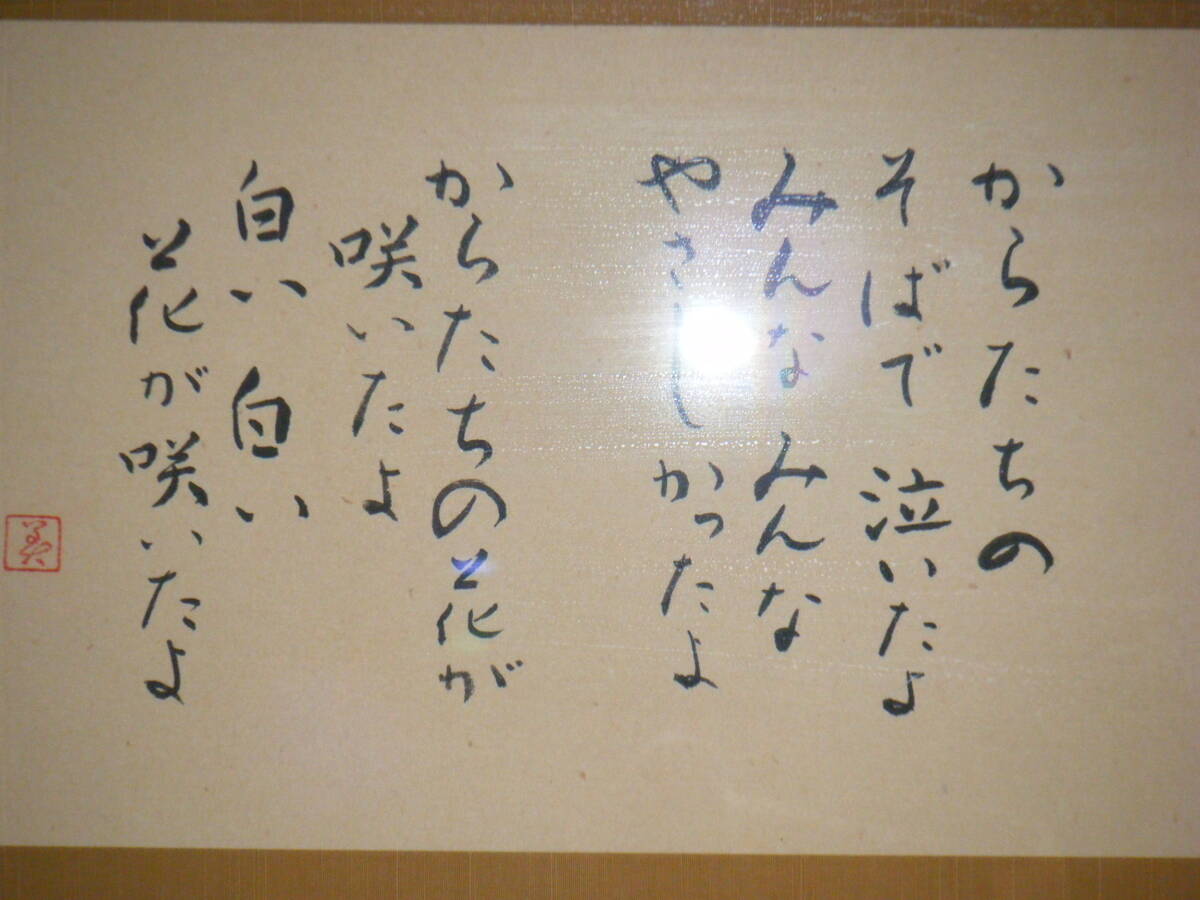 からたちの
そばで 泣いたよ
みんな みんな
やさしかったよ
からたちの花が
咲いたよ
白い 白い
花が咲いたよ